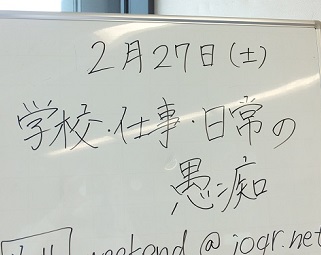 2月27日(土)
学校・仕事・日常の
愚痴
@joqr.net